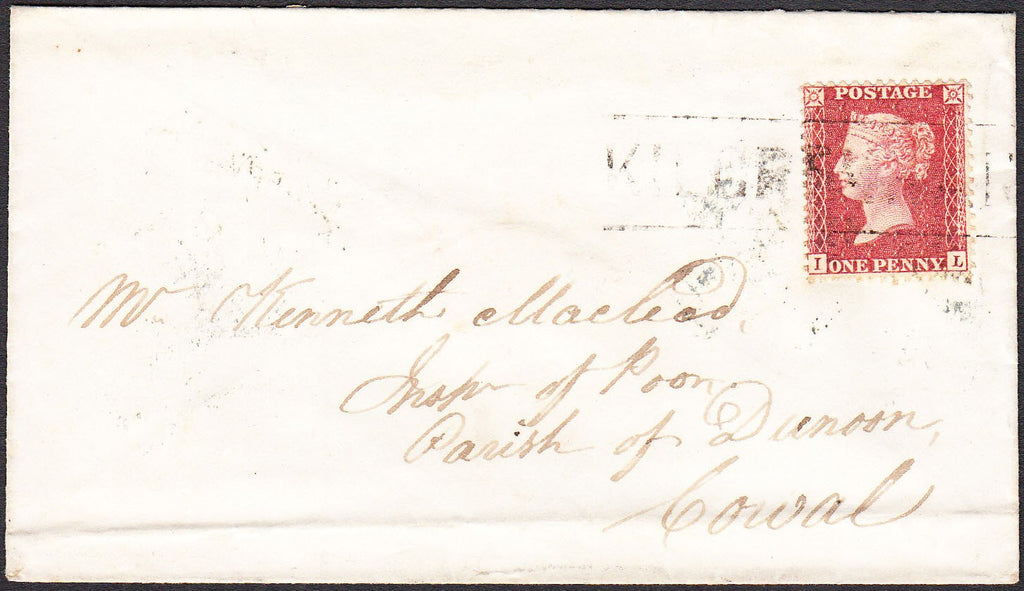 POSTAGE
KILCR
I ONE PENNY L
Mr Kenneth Macleod,
Inspr of Poor,
Parish of Dunoon,
Cowal